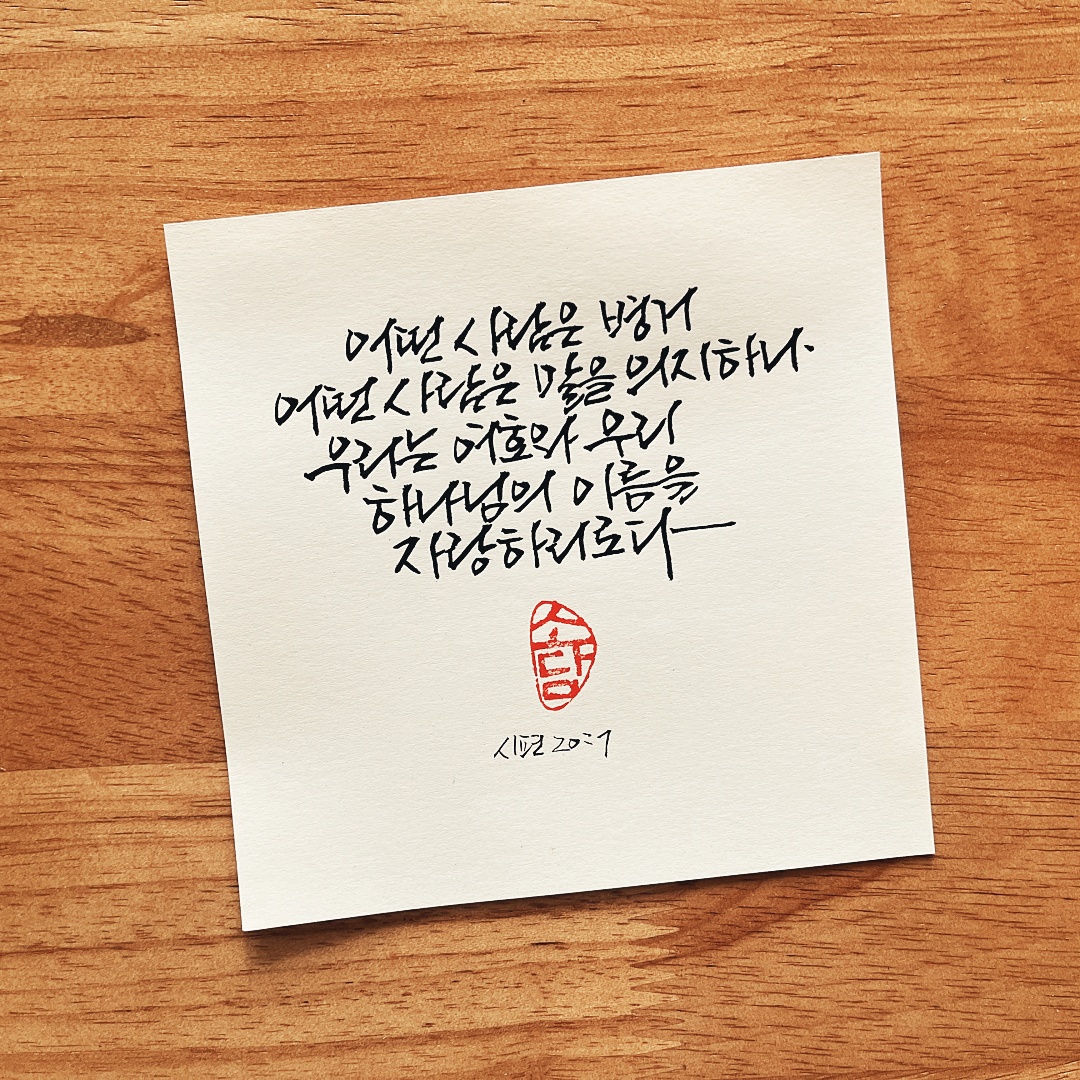 어떤 사람은 병거
어떤 사람은 말을 의지하나
우리는 여호와 우리
하나님의 이름을
자랑하리로다
소담
시편 20:7